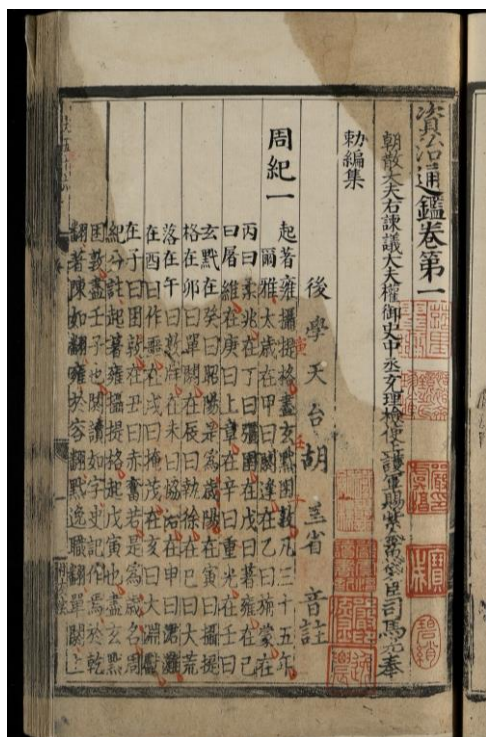 資治通鑑卷第一
朝散大夫右諫議大夫權御史中丞充理檢使上護軍賜紫金魚袋臣司馬光奉
勅編集
後學天台胡三省音註
周紀一
起著雍攝提格盡玄黓困敦凡三十五年
爾雅太歲在甲曰閼逢在乙曰旃蒙在
丙曰柔兆在丁曰彊圉在戊曰著雍在己
曰屠維在庚曰上章在辛曰重光在壬曰
玄黓在癸曰昭陽是為歲陽在寅曰攝提
格在卯曰單閼在辰曰執徐在巳曰大荒
落在午曰敦牂在未曰協洽在申曰涒灘
在酉曰作噩在戌曰掩茂在亥曰大淵獻
在子曰困敦在丑曰赤奮若是為歲名周
紀分註起著雍攝提格起戊寅也盡玄黓
困敦盡壬子也閼讀如字史記作焉於乾
翻著陳如翻雍於容翻黓逸職翻單閼上